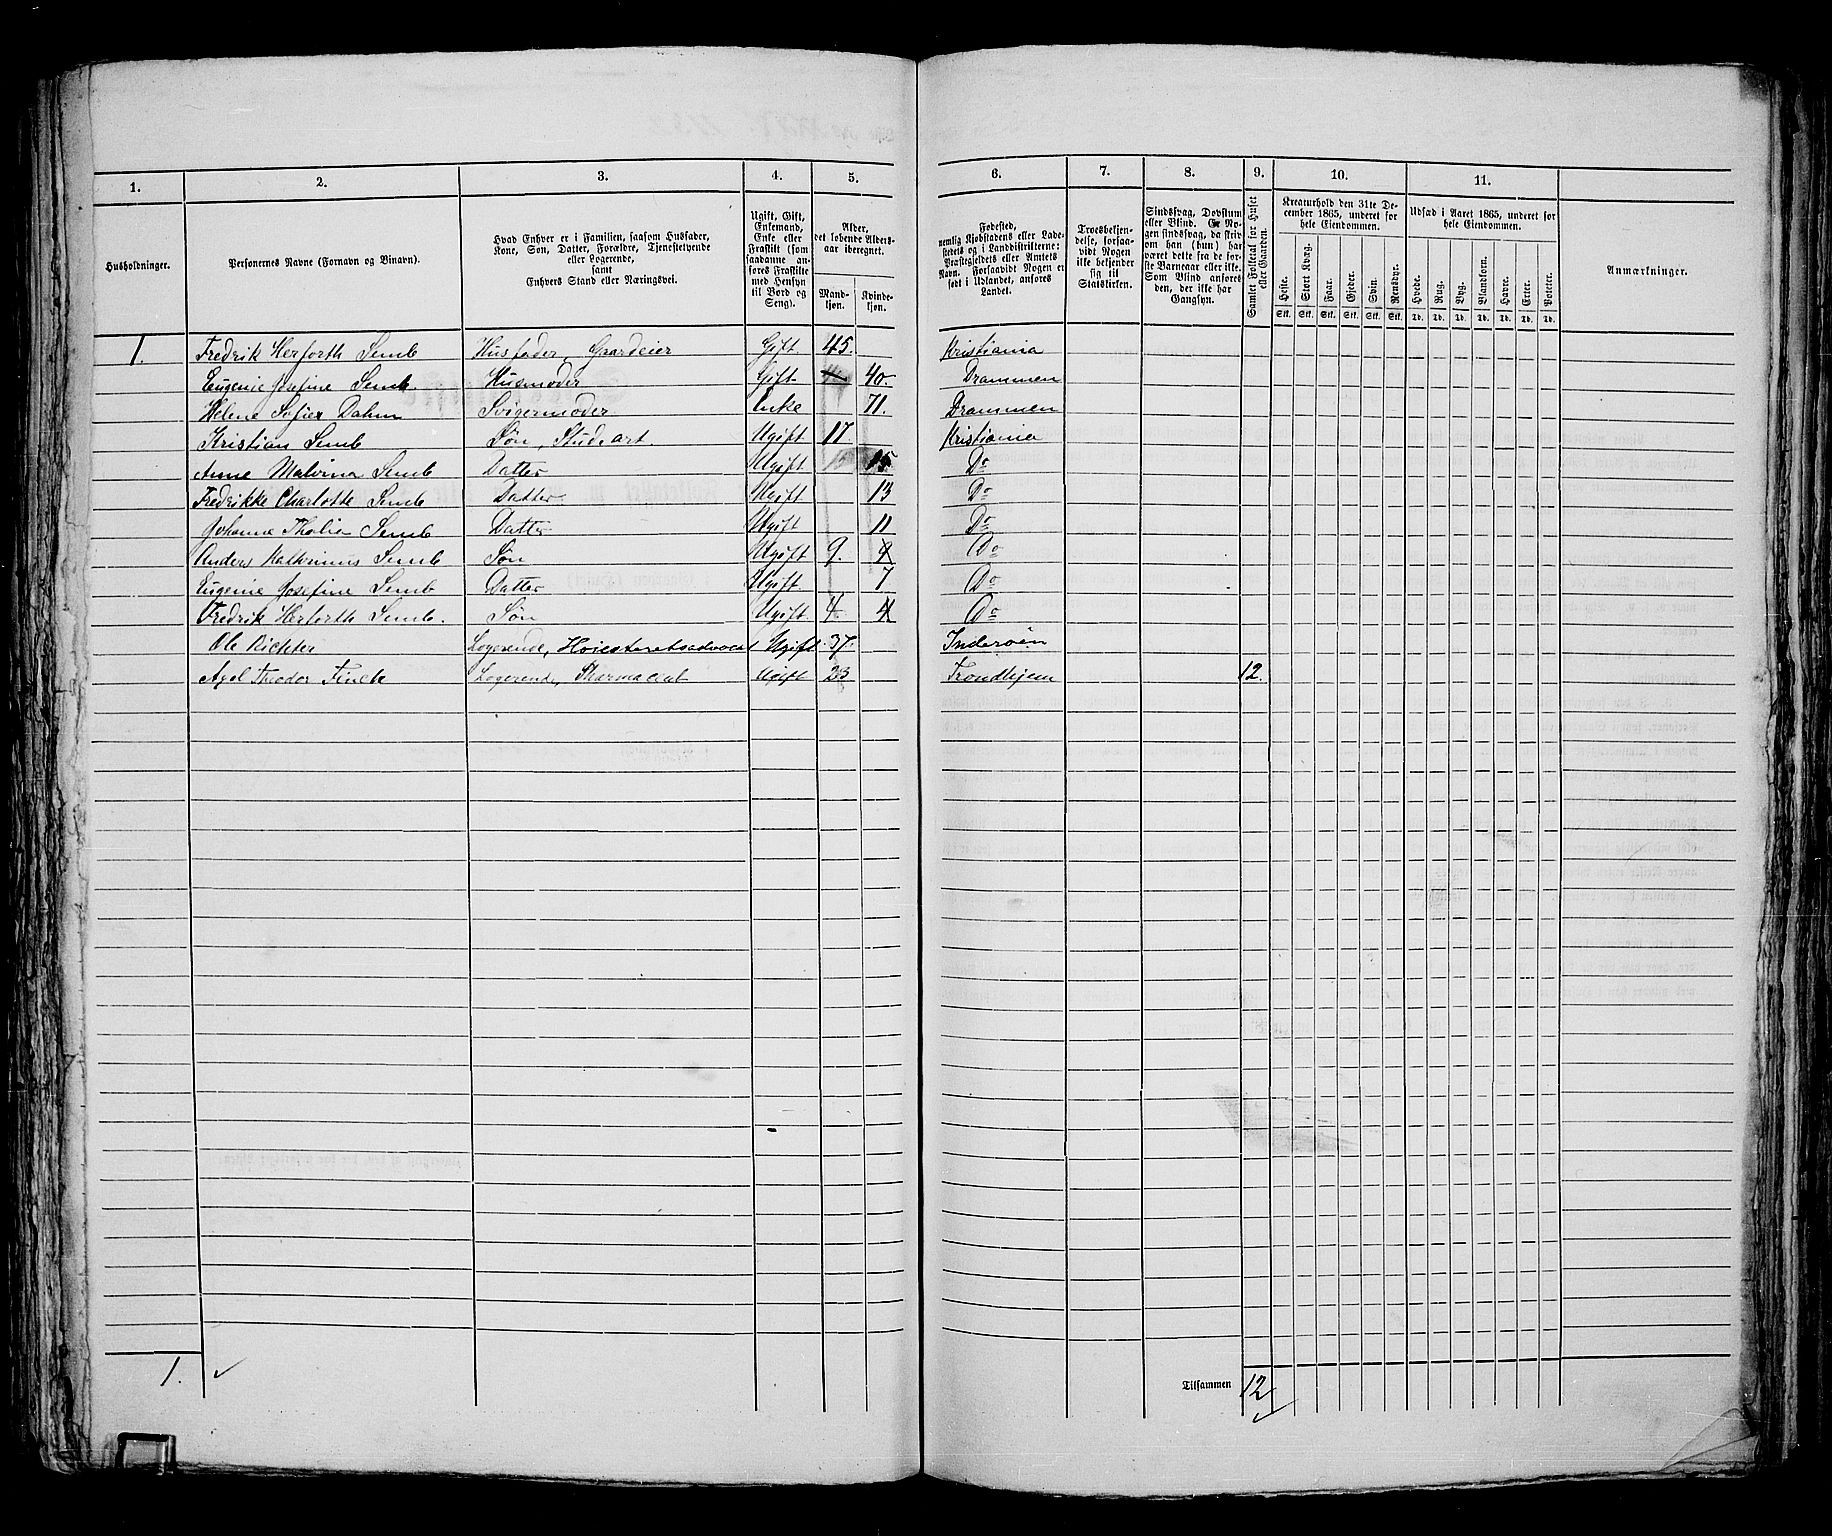 1. 2. 3. 4. 5. 6. 7. 8. 9. 10. 11.
Husholdninger.
Personernes Navne (Fornavn og Binavn).
Hvad Enhver er i Familien, saasom Husfader,
Kone, Søn, Datter, Forældre, Tjenestetyende
eller Logerende,
samt
Enhvers Stand eller Næringsvei.
Ugift, Gift,
Enkemand,
Enke eller
Fraskilt (som
saadanne an-
føres Fraskilte
med Hensyn
til Bord og
Seng).
Alder,
det løbende Alders-
aar iberegnet.
Mand-
kjøn.
Kvinde-
kjøn.
Fødested,
nemlig Kjøbstadens eller Lade-
stedets og i Landdistrikterne:
Præstegjeldets eller Amtets
Navn. Forsaavidt Nogen er
født i Udlandet, anføres
Landet.
Troesbekjen-
delse, forsaa-
vidt Nogen
ikke bekjender
sig til
Statskirken.
Sindssvag, Døvstum
eller Blind. Er No-
gen sindssvag, da skriv
om han (hun) har
været dette fra de før-
ste Barneaar eller ikke.
Som Blind anføres
den, der ikke har
Gangsyn.
Samlet Folketal for Huset
eller Gaarden.
Kreaturhold den 31te De-
cember 1865, underet for
hele Eiendommen.
Heste. Stort Kvæg. Faar. Gjeder. Svin. Rensdyr.
Stk. Stk. Stk. Stk. Stk. Stk.
Udsæd i Aaret 1865, underet for
hele Eiendommen.
Hvede. Rug. Byg. Blandkorn. Havre. Erter. Poteter.
Td. Td. Td. Td. Td. Td. Td.
Anmærkninger.
1. Fredrik Herforth Semb Husfader, Gaardeier Gift 45. Kristiania
Eugenie Josefine Semb. Husmoder Gift 40. Drammen
Helene Sofie Dahm Svigermoder Enke 71. Drammen
Kristian Semb Søn, Ugift 17 Kristiania
Anne Malvina Semb Datter Ugift 15 Do
Fredrikke Charlotte Semb Datter Ugift 13 Do
Johanne Semb Datter Ugift 11 Do
Anders Semb Søn Ugift 9. 9 Do
Eugenie Josefine Semb Datter Ugift 7 Do
Fredrik Herforth Semb. Søn Ugift 4 4 Do
Ole Richter Logerende, Høiesteretsadvocat Ugift. 37. Inderøen
Axel Theodor Finck Logerende, Pharmaceut Ugift 23 Trondhjem 12.
1. ✓
Tilsammen 12 ✓